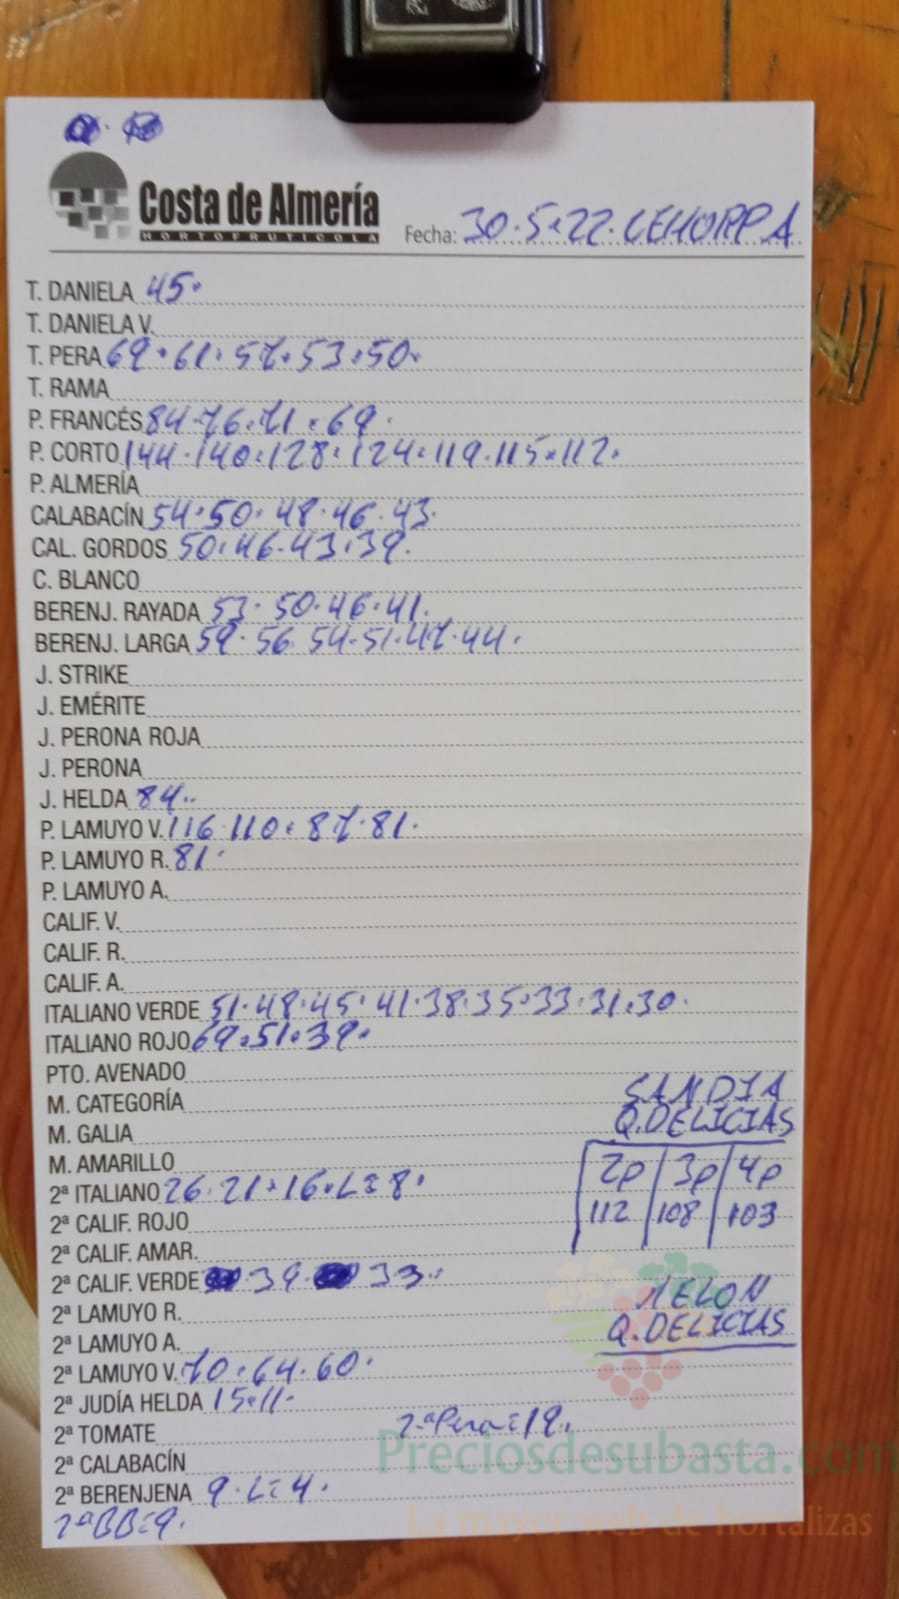 Costa de Almería
HORTOFRUTICOLA
Fecha: 30.5.22. CEHORPA
T. DANIELA 45.
T. DANIELA V.
T. PERA 69.61.57.53.50.
T. RAMA
P. FRANCÉS 84.76.71.69.
P. CORTO 144.140.128.124.119.115.112.
P. ALMERÍA
CALABACÍN 54.50.48.46.43.
CAL. GORDOS 50.46.43.39.
C. BLANCO
BERENJ. RAYADA 53.50.46.41.
BERENJ. LARGA 59.56.54.51.47.44.
J. STRIKE
J. EMÉRITE
J. PERONA ROJA
J. PERONA
J. HELDA 84..
P. LAMUYO V. 116.110.87.81.
P. LAMUYO R. 81.
P. LAMUYO A.
CALIF. V.
CALIF. R.
CALIF. A.
ITALIANO VERDE 51.48.45.41.38.35.33.31.30.
ITALIANO ROJO 69.51.39.
PTO. AVENADO
M. CATEGORÍA
M. GALIA
M. AMARILLO
SANDIA
Q.DELICIAS
2p 3p 4p
112 108 103
2ª ITALIANO 26.21.16.L=8.
2ª CALIF. ROJO
2ª CALIF. AMAR.
2ª CALIF. VERDE 39. 33.
2ª LAMUYO R.
2ª LAMUYO A.
MELON
Q.DELICIAS
2ª LAMUYO V. 70.64.60.
2ª JUDÍA HELDA 15.11.
2ª TOMATE 2ªPera=19.
2ª CALABACÍN
2ª BERENJENA 9.L=4.
2ªBB=9.
Preciosdesubasta.com
La mayor web de hortalizas